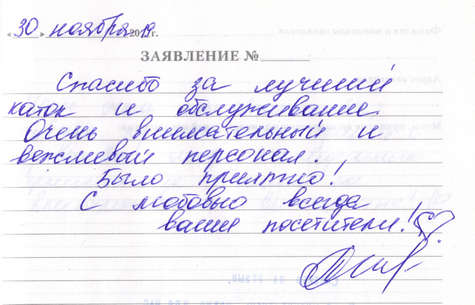 «30» ноября 2019г.
ЗАЯВЛЕНИЕ №
Спасибо за лучший
каток и обслуживание.
Очень внимательный и
вежливый персонал!
Было приятно!
С любовью всегда
ваши посетители!